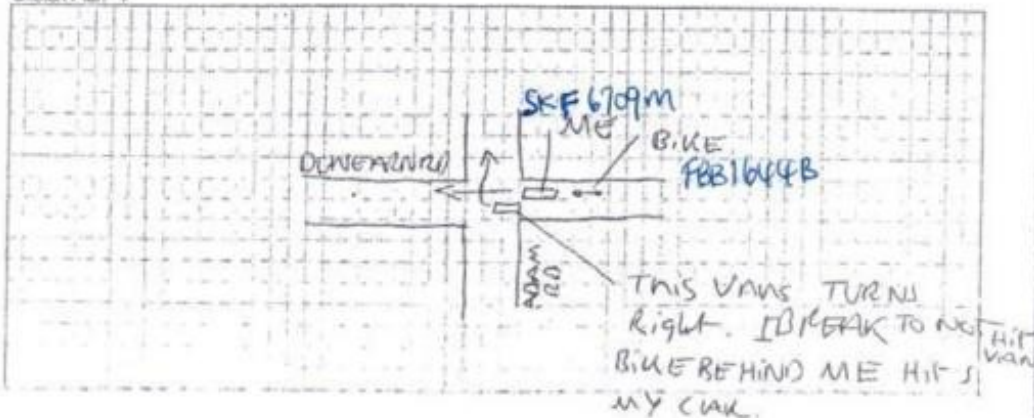 SKF6709M
ME
BIKE
FBB1644B
DUNEARN RD
ADAM
RD
THIS VANS TURNS
Right. I BREAK TO NOT HIT VAN
BIKE BEHIND ME HITS
MY CAR.